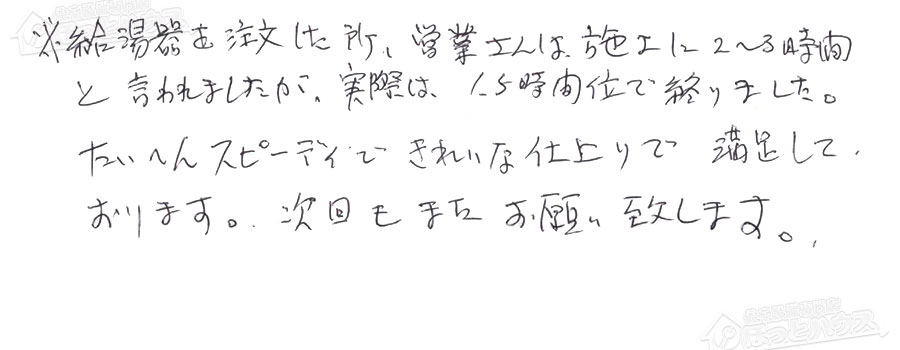 ※給湯器を注文した所、営業さんは施工に2〜3時間
と言われましたが、実際は、1.5時間位で終りました。
たいへんスピーディできれいな仕上りで満足して
おります。次回もまたお願い致します。
住宅設備専門店
ほっとハウス